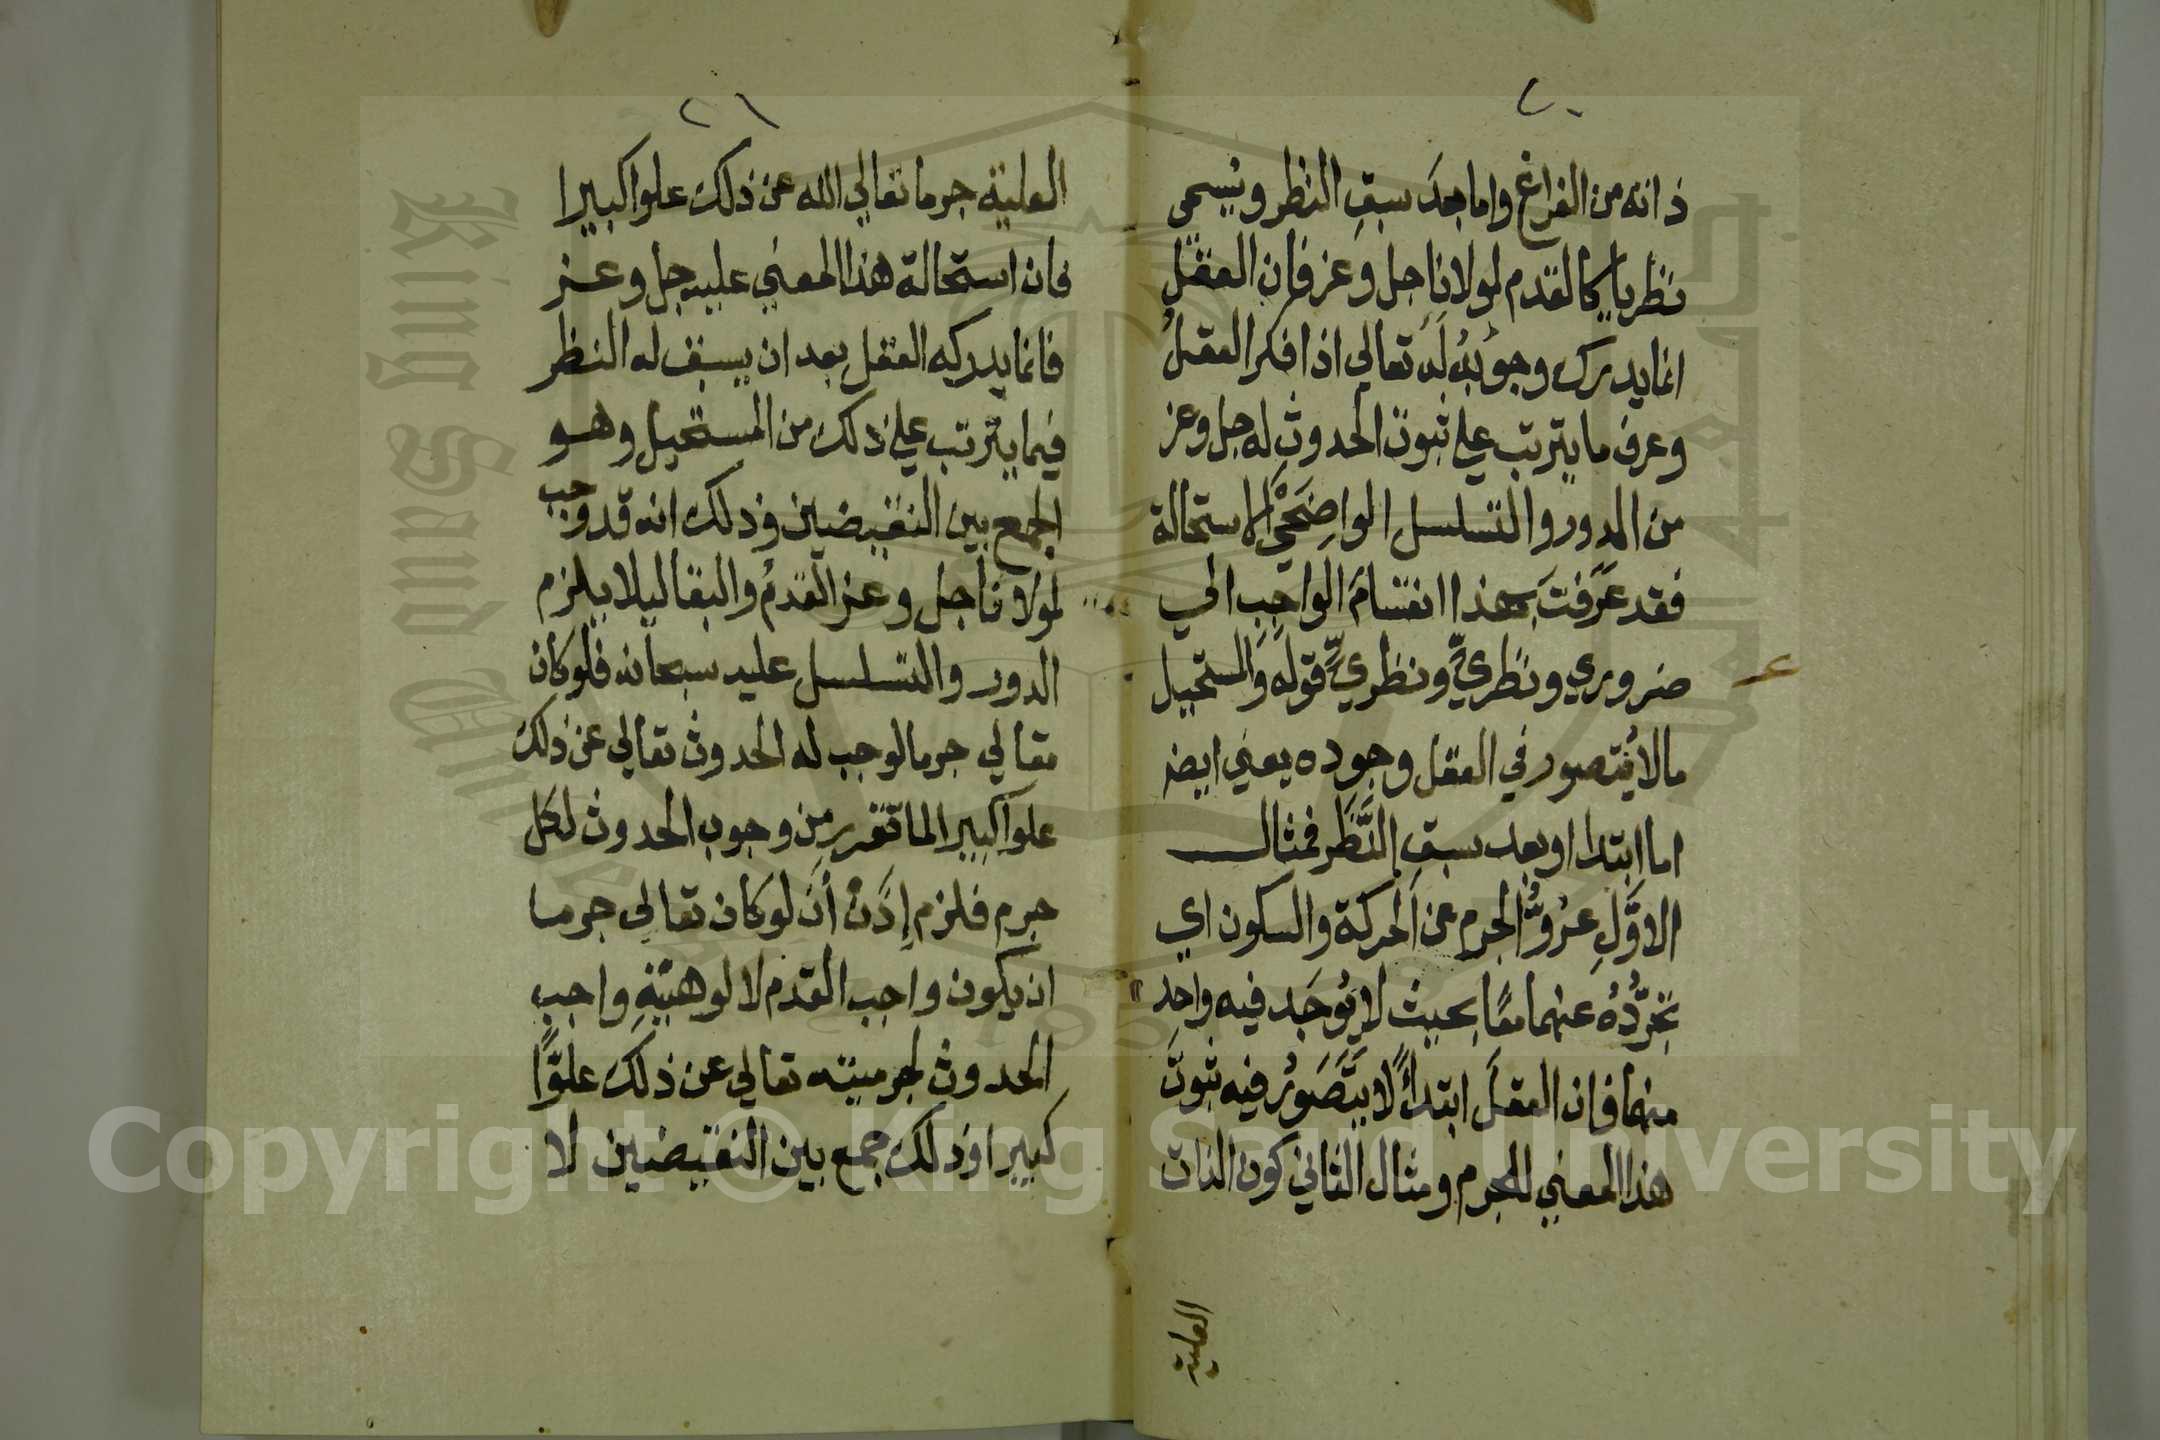 ٢٠
ذاته من الفراغ واما بعد سبق النظر ويسمي
نظريا كالقدم لمولانا جل وعز فان العقل
انما يدرك وجوبه له تعالي اذا فكر العقل
وعرف ما يترتب علي ثبوت الحدوث له جل وعز
من الدور والتسلسل الواضحي الاستحالة
فقد عرفت بهذا انقسام الواجب الي
ضروري ونظري ونظري قوله والمستحيل
مالا يتصور في العقل وجوده يعني ايضا
اما ابتدا او بعد سبق النظر فمثال
الاول عرو الجرم عن الحركة والسكون اي
تجرده عنهما معا بحيث لا يوجد فيه واحد
منهما فان العقل ابتداء لا يتصور فيه ثبوت
هذا المعني للجرم ومثال الثاني كون الذات
العلية
٢١
العلية جرما تعالي الله عن ذلك علوا كبيرا
فان استحالة هذا المعني عليه جل وعز
فانما يدركه العقل بعد ان يسبق له النظر
فيما يترتب علي ذلك من المستحيل وهو
الجمع بين النقيضين وذلك انه قد وجب
لمولانا جل وعز القدم والبقا ليلا يلزم
الدور والتسلسل عليه سبحانه فلو كان
تعالي جرما لوجب له الحدوث تعالي عن ذلك
علوا كبيرا لما تقرر من وجوب الحدوث لكل
جرم فلزم إذن أن لو كان تعالي جرما
ان يكون واجب القدم لالوهيته واجب
الحدوث لجرميته تعالي عن ذلك علوًّا
كبيرا وذلك جمع بين النقيضين لا
Copyright © King Saud University
King Saud University
1957